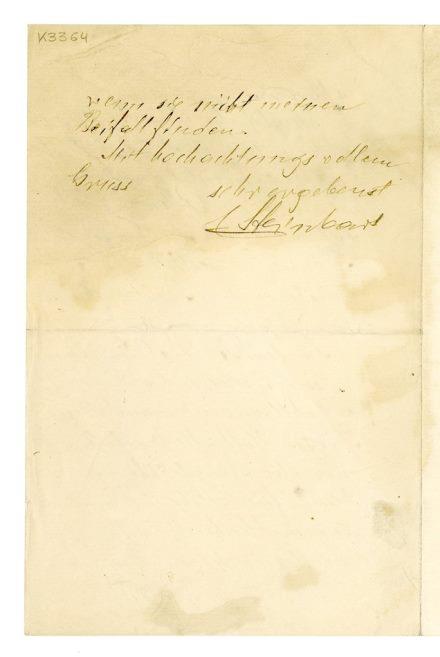 K3364
wenn sie nicht meinen
Beifall finden.
Mit hochachtungsvollem
Gruss sehr ergebenst
Steinbars